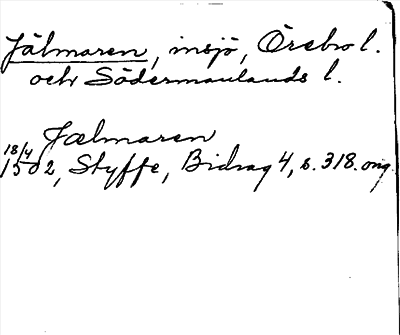 Jälmaren, insjö, Örebro l.
och Södermanlands l.
Jælmaren
18/4
1502, Styffe, Bidrag 4, s. 318. orig.